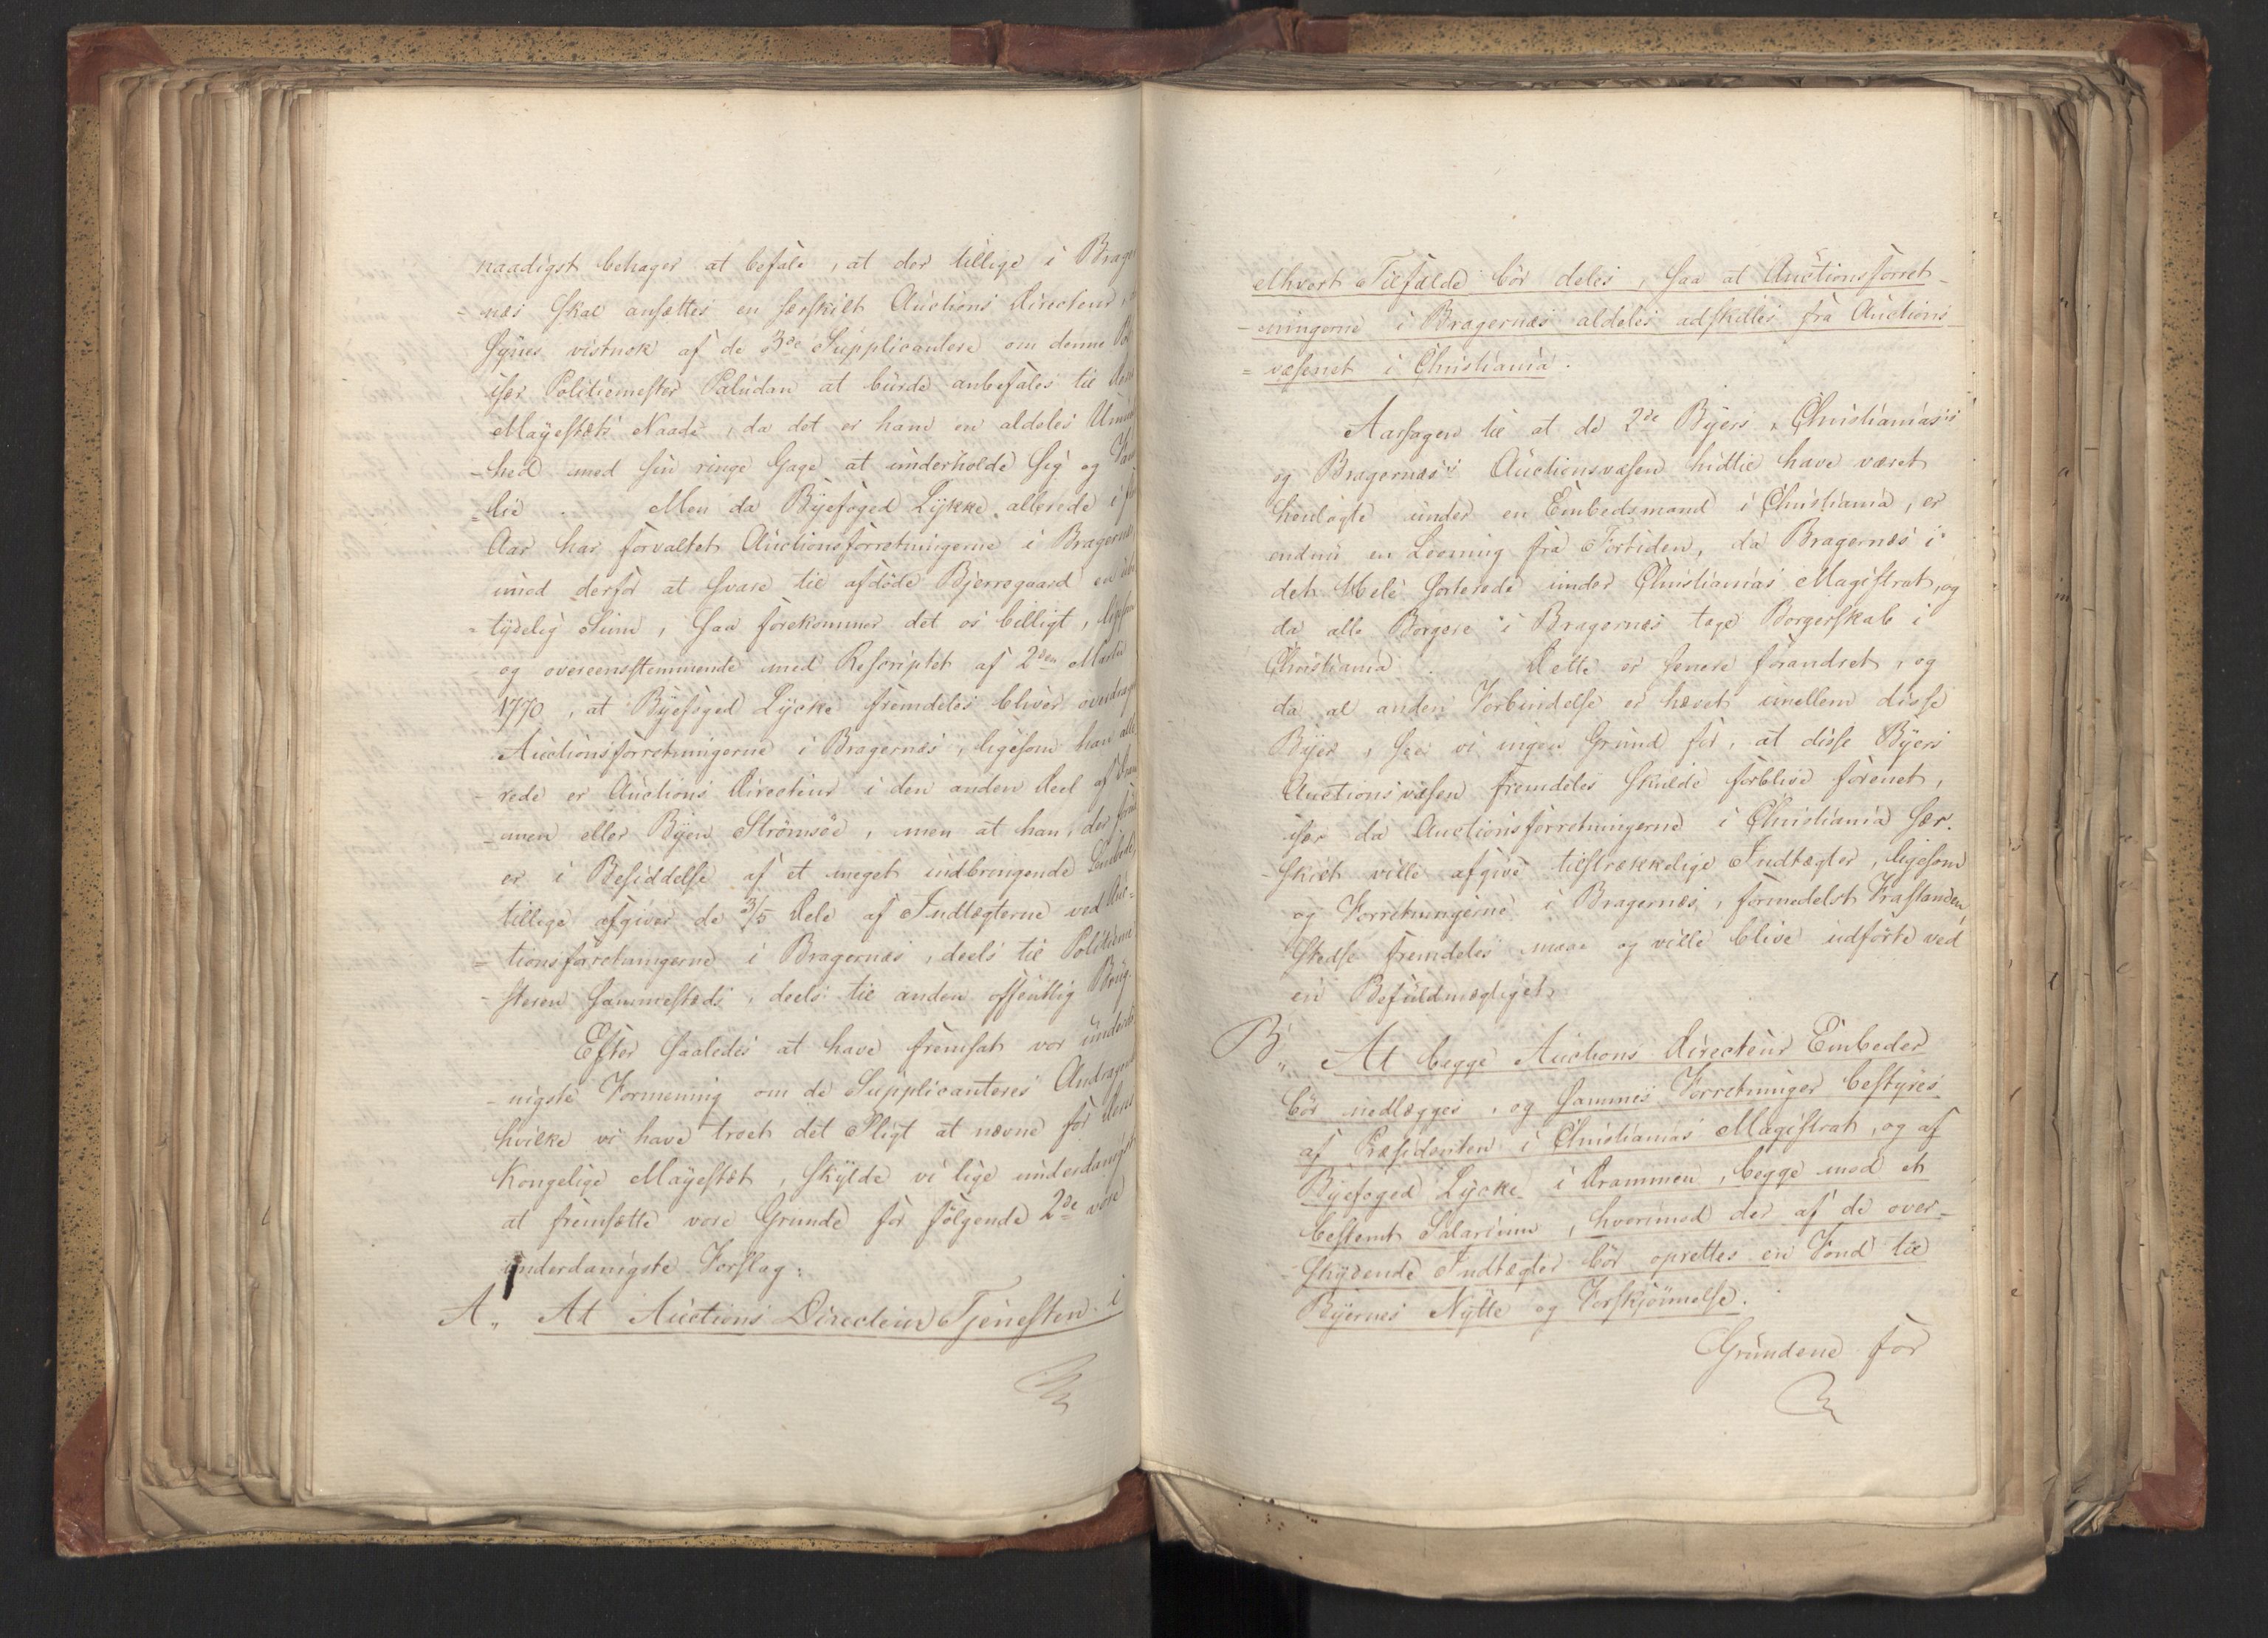 naadigst behager at befale, at der tillige i Brager
-næs skal ansættes en særskilt Auctions Directeur,
synes vistnok af de 3de Supplicantere om denne
især Politiemester Paludan at burde anbefales til
Mayestæts Naade, da det er ham en aldeles
-hed med sin ringe Gage at underholde sig og
-lie. Men da Byefoged Lykke allerede i
Aar har forvaltet Auctionsforretningerne i Bragernæs,
imod derfor at svare til afdøde Bjerregaard en
-tydelig Sum, saa forekommer det os billigt, ligesom
og overeensstemmende med Rescriptet af 2den Martii
1770, at Byefoged Lycke fremdeles bliver overdraget
Auctionsforretningerne i Bragernæs, ligesom han alle
-rede er Auctions Directeur i den anden Deel af Dram
-men eller Byen Strømsøe, men at han, der
er i Besiddelse af et meget indbringende Embede,
tillige afgiver de 3/5 Dele af Indtægterne ved Auc=
=tionsforretningerne i Bragernæs, deels til Politieme
-steren sammesteds, deels til anden offentlig Brug.
Efter saaledes at have fremsat vor underda
-nigste Formening om de Supplicanteres Andragende
hvilke vi have troet det Pligt at nævne for Deres
Kongelige Mayestæt, skylde vi lige underdanigst
at fremsætte vore Grunde for følgende 2de vore
underdanigste Forslag:
A,, At Auctions Directeur Tjenesten i
ethvert Tilfælde bör deles, saa at Auctionsforret-
-ningerne i Bragernæs aldeles adskilles fra Auctions
=væsenet i Christiania.
Aarsagen til at de 2de Byers, Christianias's
og Bragernæs's Auctionsvæsen hidtil have været
henlagte under en Embedsmand i Christiania, er
endnu en Levning fra Fortiden, da Bragernæs i
det Hele sorterede under Christianias Magistrat, og
da alle Borgere i Bragernæs toge Borgerskab i
Christiania. Dette er senere forandret, og
da al anden Forbindelse er hævet imellem disse
Byer, see vi ingen Grund for, at disse Byers
Auctionsvæsen fremdeles skulde forblive forenet,
især da Auctionsforretningerne i Christiania sær-
-skilt ville afgive tilstrækkelige Indtægter, ligesom
og Forretningerne i Bragernæs, formedelst Frastanden,
stedse fremdeles maae og ville blive udførte ved
en Befuldmægtiget.
B,, At begge Auctions Directeur Embeder
bör nedlægges, og sammes Forretninger bestyres
af Præsidenten i Christianias Magistrat, og af
Byefoged Lycke i Drammen, begge imod et
bestemt Salarium, hvorimod der af de over-
-skydende Indtægter bör oprettes en Fond til
Byernes Nytte og Forskjønnelse.
Grundene for